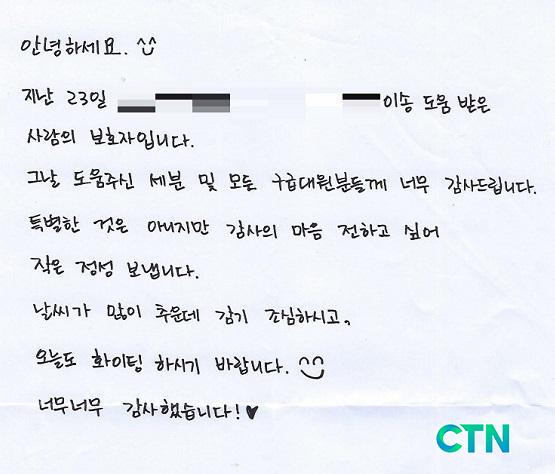 안녕하세요. ^^
지난 23일 이송 도움 받은
사람의 보호자입니다.
그날 도움주신 세분 및 모든 구급대원분들께 너무 감사드립니다.
특별한 것은 아니지만 감사의 마음 전하고 싶어
작은 정성 보냅니다.
날씨가 많이 추운데 감기 조심하시고,
오늘도 화이팅 하시기 바랍니다. ^^
너무너무 감사했습니다! ♥
CTN